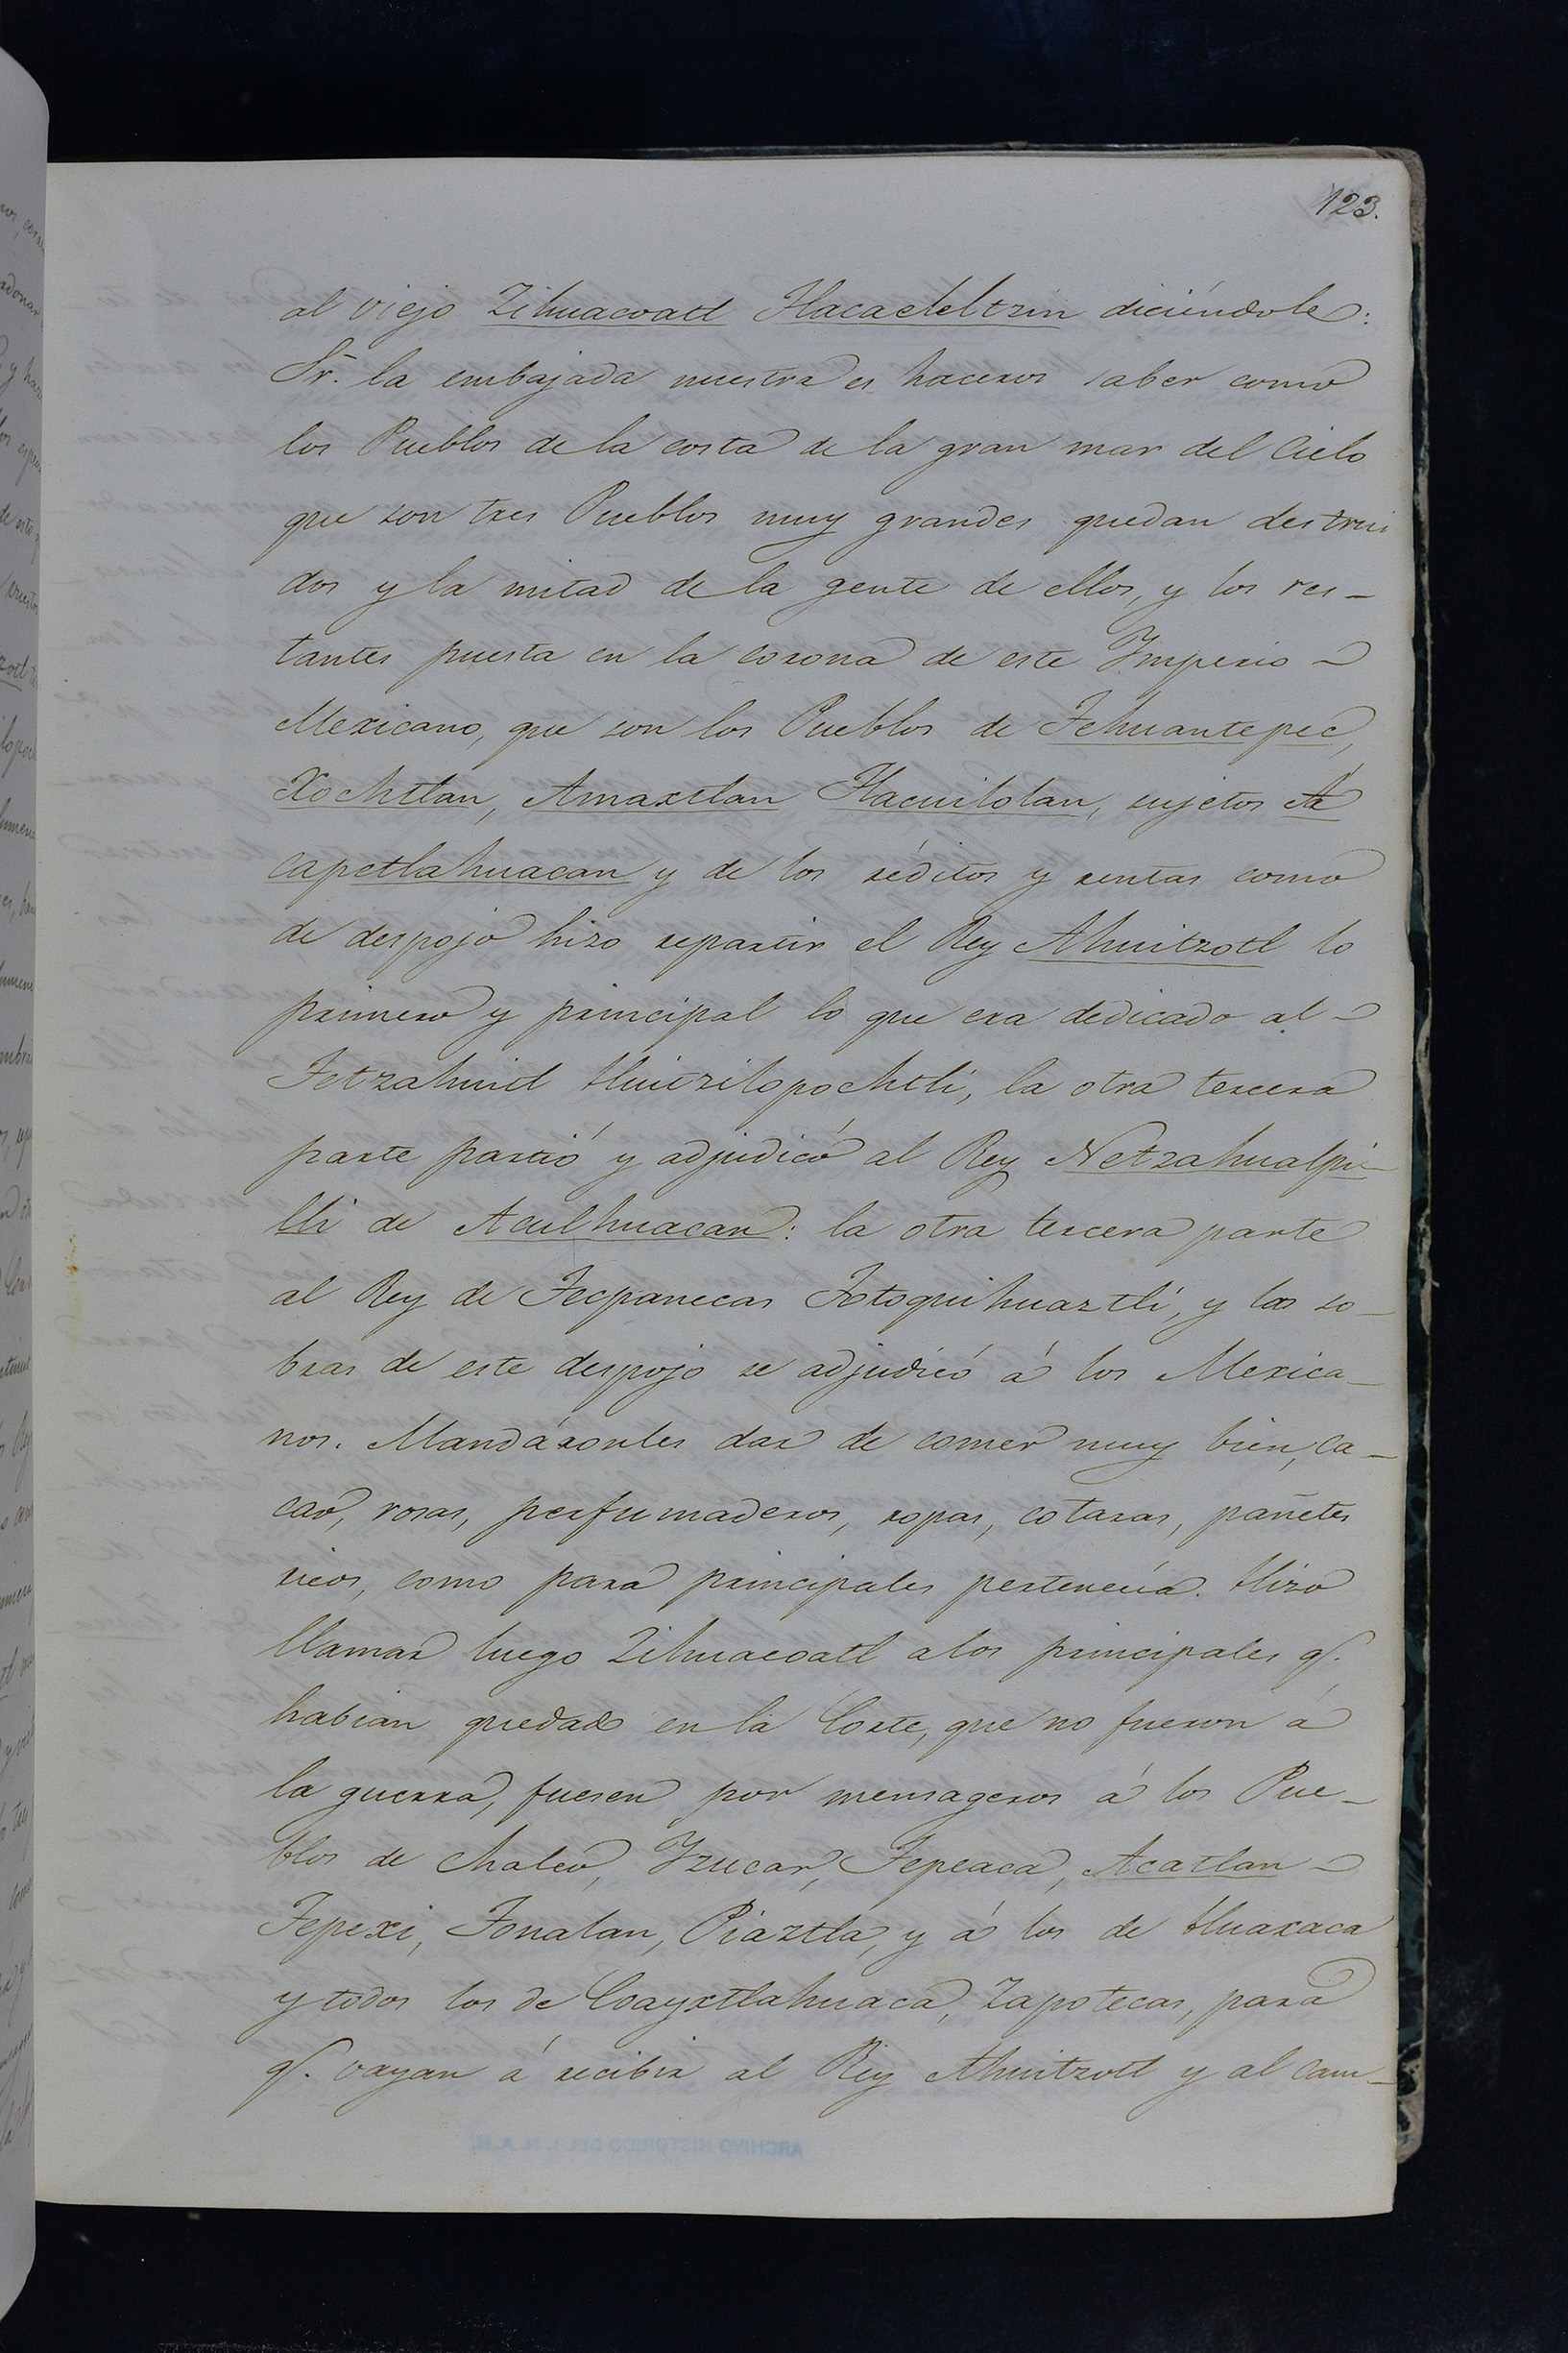 123.
al viejo Zihuacoatl Tlacaeleltzin diciéndole:
Sr. la embajada nuestra es haceros saber como
los Pueblos de la costa de la gran mar del Cielo
que son tres Pueblos muy grandes quedan destrui
dos y la mitad de la gente de ellos, y los res-
tantes puesta en la corona de este Imperio -
Mexicano, que son los Pueblos de Tehuantepec,
Xochtlan, Amaxtlan Tlacuilolan, sujetos Az
capetlahuacan y de los réditos y rentas como
de despojo hizo repartir el Rey Ahuitzotl lo
primero y principal lo que era dedicado al -
Tetzahuitl Huitzilopochtli, la otra tercera
parte partió y adjudicó al Rey Netzahualpi-
lli de Aculhuacan: la otra tercera parte
al Rey de Tecpanecas Totoquihuaztli, y las so-
bras de este despojo se adjudicó á los Mexica-
nos. Mandáronles dar de comer muy bien, ca-
cao, rosas, perfumaderos, ropas, cotaras, pañetes
ricos, como para principales pertenecía. Hizo
llamar luego Zihuacoatl a los principales q.
habian quedado en la Corte, que no fueron á
la guerra, fuesen por mensageros á los Pue-
blos de Chalco, Yzucar, Tepeaca, Acatlan -
Tepexi, Tonalan, Piaztla, y á los de Huaxaca
y todos los de Coayxtlahuaca, Zapotecas, para
q. vayan á recibir al Rey Ahuitzotl y al cam-
ARCHIVO HISTORICO DEL I. N. A. H.